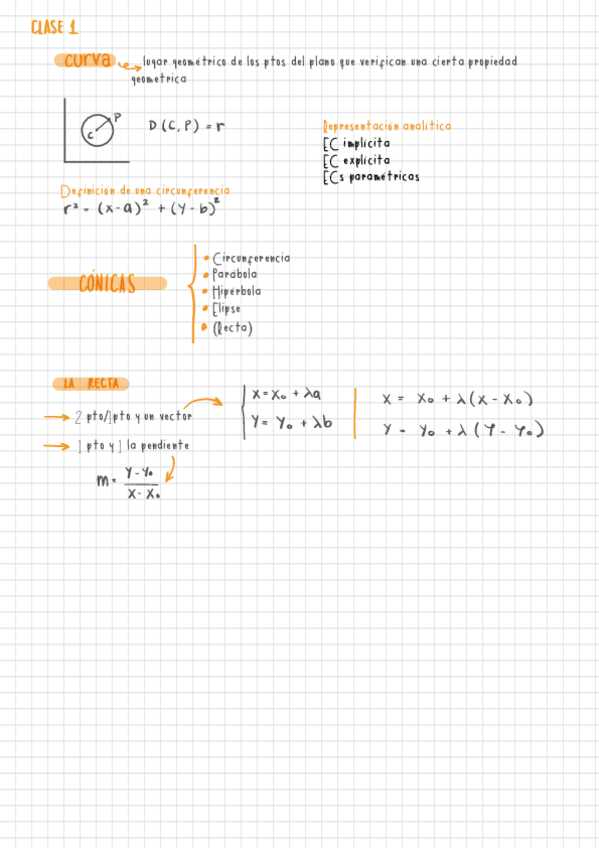 CLASE 1
curva lugar geométrico de los ptos del plano que verifican una cierta propiedad
geometrica
P
C
D (C, P) = r
Representación analítica
EC implícita
EC explícita
ECs paramétricas
Definición de una circunferencia
r² = (x-a)² + (y-b)²
CÓNICAS
• Circunferencia
• Parábola
• Hipérbola
• Elipse
• (Recta)
LA RECTA
→ 2 pto/1pto y un vector
x = x₀ + λa
y = y₀ + λb
x = x₀ + λ(x - x₀)
y = y₀ + λ(y - y₀)
→ 1 pto y 1 la pendiente
m = y - y₀ / x - x₀